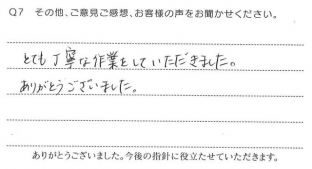 Q7 その他、ご意見ご感想、お客様の声をお聞かせください。
とても丁寧な作業をしていただきました。
ありがとうございました。
ありがとうございました。今後の指針に役立たせていただきます。